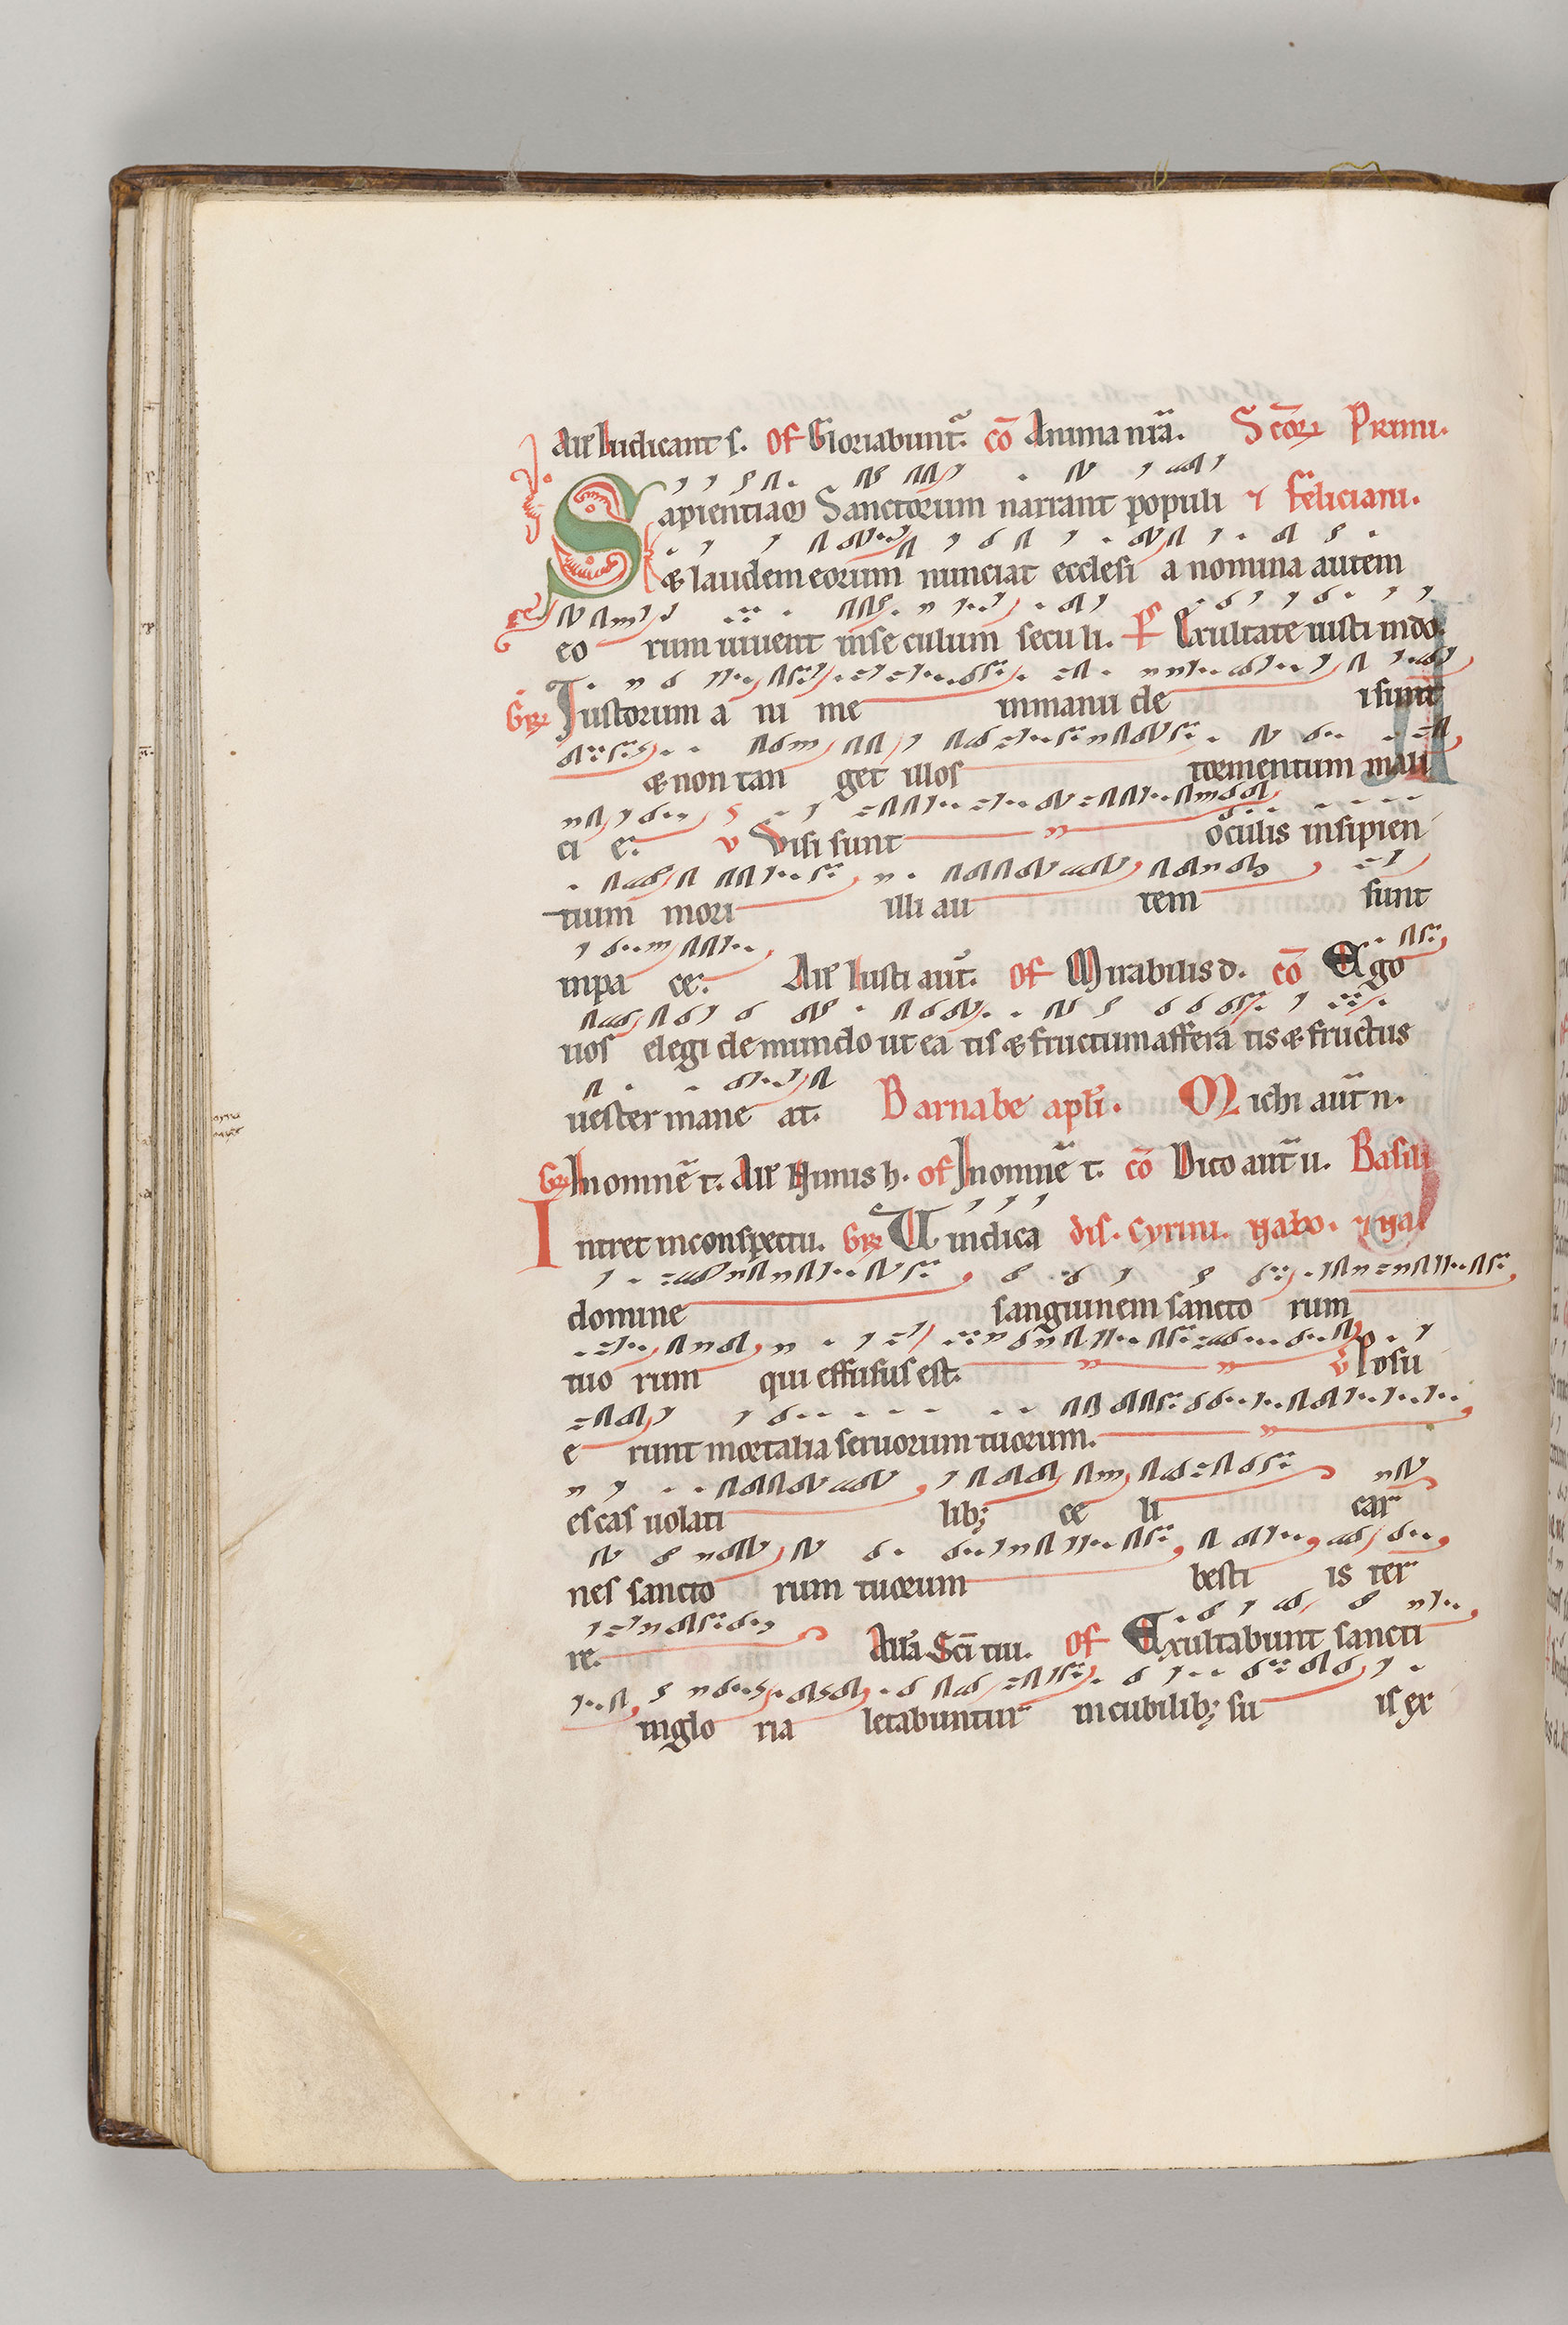 All̃ Iudicant s. Of Gloriabunt̃. cō Anima nr̃a. Sc̄orꝝ Primi.
Sapientiam Sanctorum narrant populi ⁊ feliciani.
& laudem eorum nunciat ecclesi a nomina autem
eo rum uiuent inse culum secu li. Ps Exultate iusti in do.
Gr̃ Iustorum a ni me inmanu de i sunt
& non tan get illos tormentum mali
ci e. v Visi sunt oculis insipien
tium mori illi au tem sunt
inpa ce. All̃ Iusti aut̃. Of Mirabilis d. cō Ego
uos elegi de mundo ut ea tis & fructum affera tis & fructus
uester mane at. Barnabe apl̃i. Michi aut̃ n.
Gr̃ In omnē t. All̃ Nimis h. of In omnē t. cō Dico aut̃ u. Basili
Intret in conspectu. Gr̃ Uindica dis. Cyrini. nabo. ⁊ na
domine sanguinem sancto rum
tuo rum qui effusus est. v Posu
e runt mortalia seruorum tuorum.
escas uolati lib; ce li car
nes sancto rum tuorum besti is ter
re. All̃a Sc̄i tui. Of Exultabunt sancti
inglo ria letabuntur in cubilib; su is ex